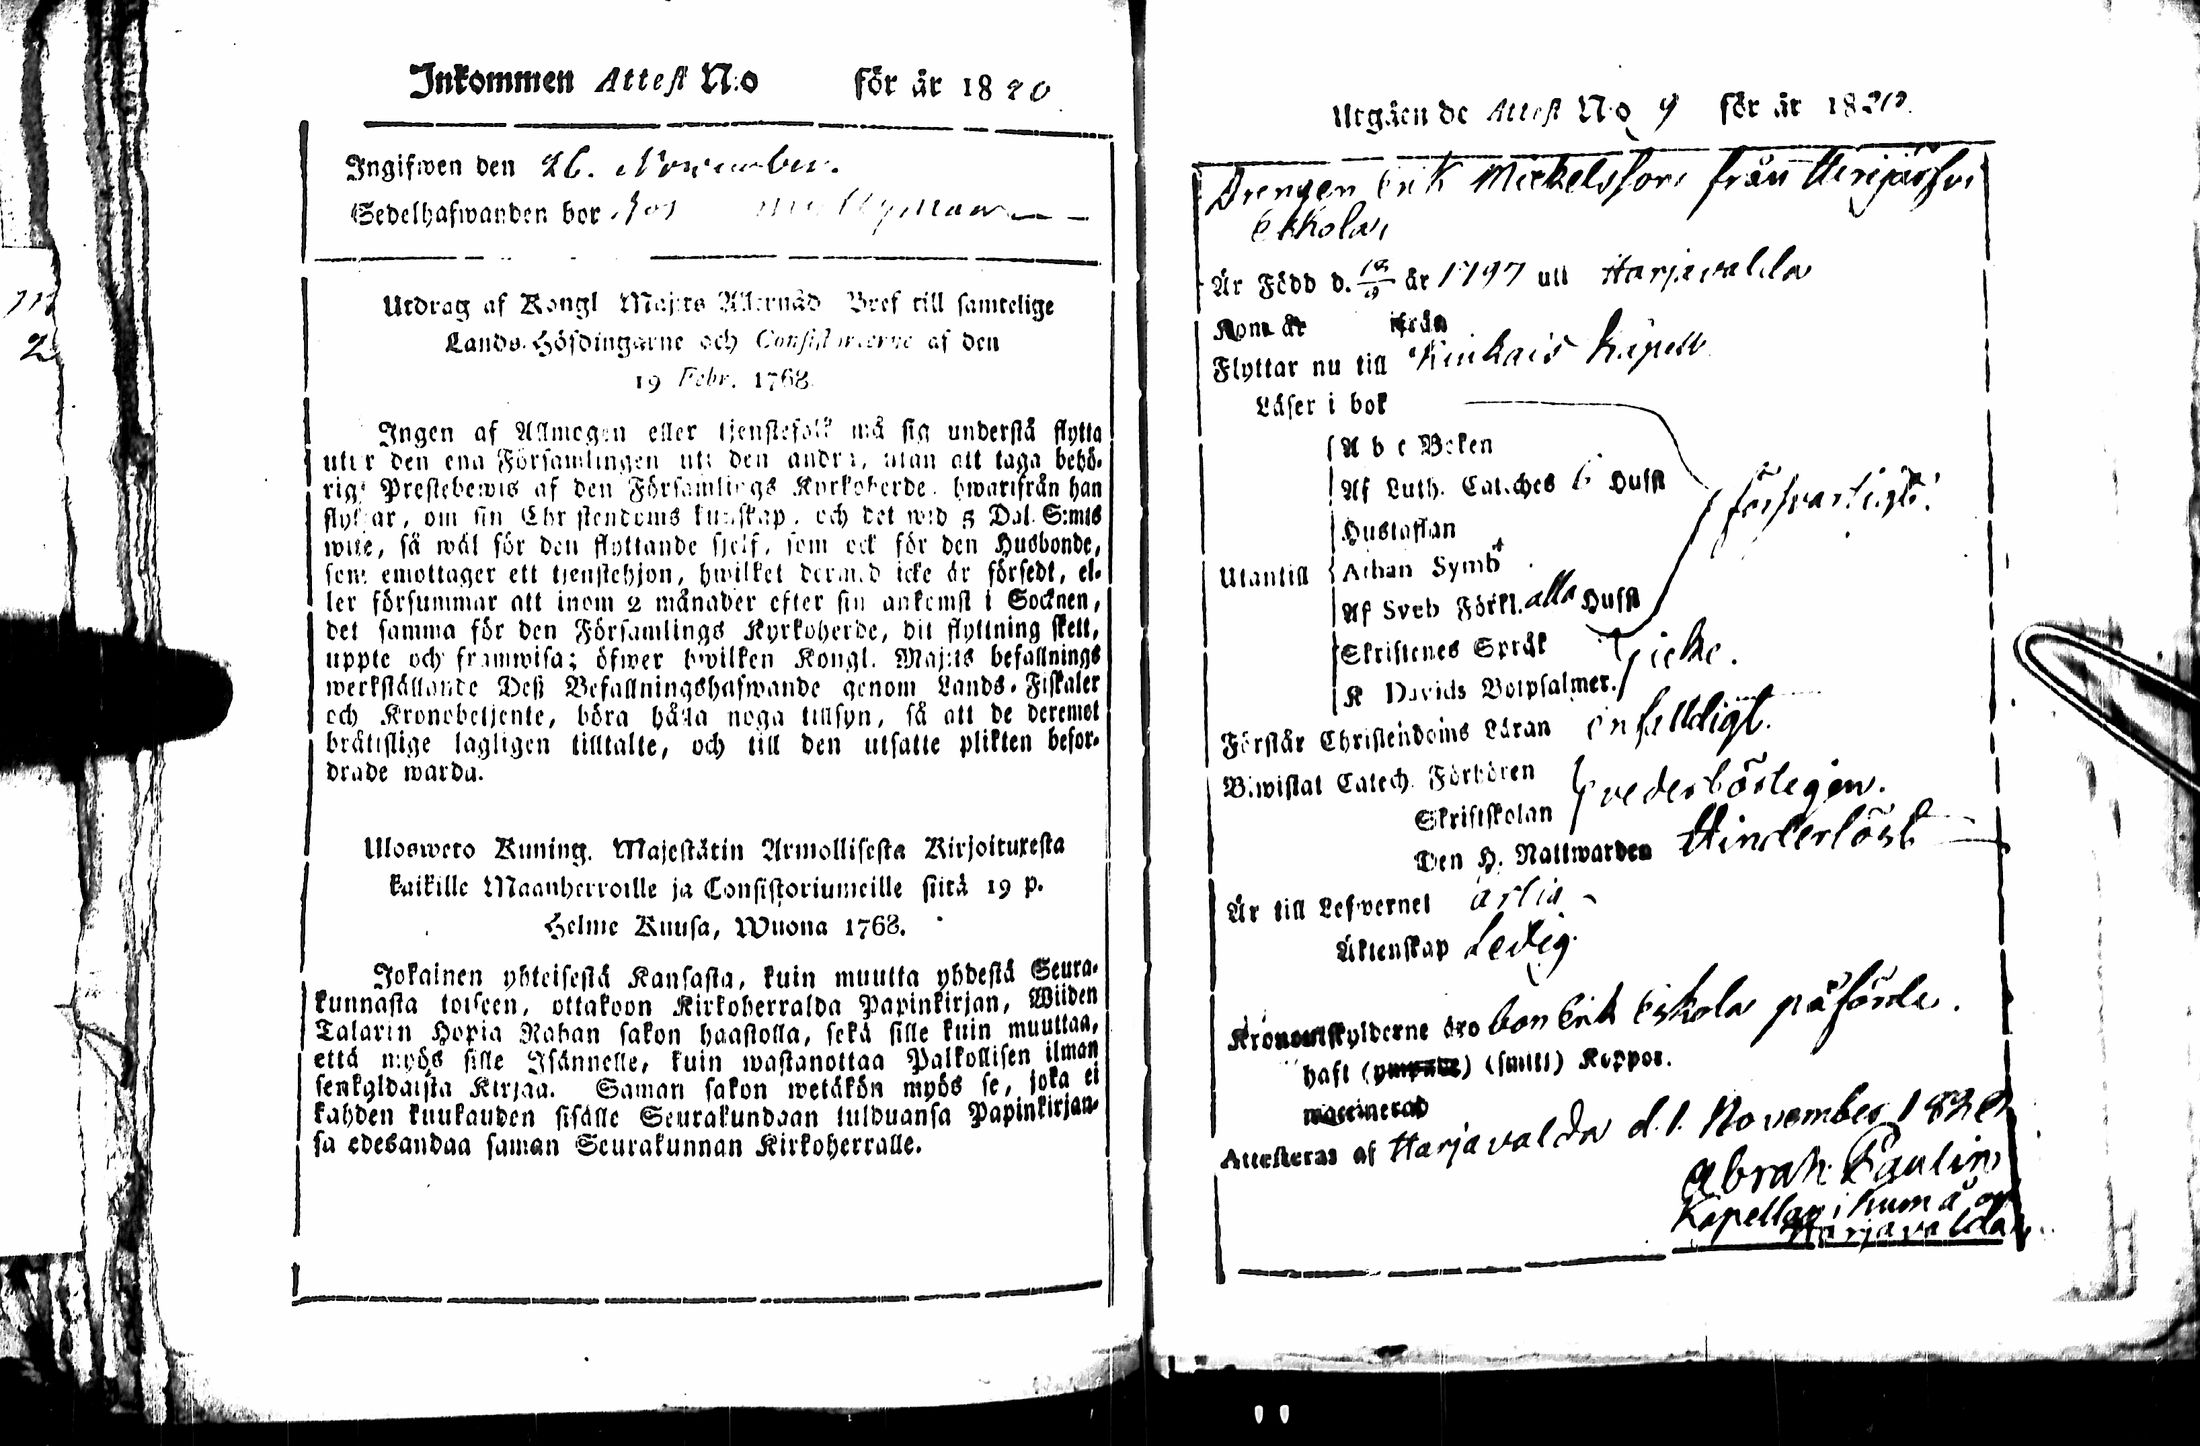 Inkommen Attest N:o för år 1820
Ingifwen den 26. November.
Sedelhafwanden bor hos
Utdrag af Kongl Maj:ts Allernåd Bref till samtelige
Lands-Höfdingarne och Consistorierne af den
19 Febr. 1768.
Ingen af Allmogen eller tjenstefolk må sig understå flytta
utur den ena Församlingen uti den andra, utan att taga behö-
rigt Prestebewis af den Församlings Kyrkoherde, hwarifrån han
flyttar, om sin Christendoms kunskap, och det wid 5 Dal. S:mts
wite, så wäl för den flyttande sjelf, som ock för den Husbonde,
som emottager ett tjenstehjon, hwilket dermed icke är försedt, el-
ler försummar att inom 2 månader efter sin ankomst i Socknen,
det samma för den Församlings Kyrkoherde, dit flyttning skett,
uppte och framwisa; öfwer hwilken Kongl. Maj:ts befallnings
werkställande Deß Befallningshafwande genom Lands-Fiskaler
och Kronobetjente, böra hålla noga tillsyn, så att de deremot
brättslige lagligen tilltalte, och till den utsatte plikten befor-
drade warda.
Ulosweto Kuning. Majestätin Armollisesta Kirjoituxesta
kaikille Maanherroille ja Consistoriumeille siitä 19 p.
Helme Kuusa, Wuona 1768.
Jokainen yhteisestä Kansasta, kuin muutta yhdestä Seura-
kunnasta toiseen, ottakoon Kirkoherralda Papinkirjan, Wiiden
Talarin Hopia Rahan sakon haastolla, sekä sille kuin muuttaa,
että myös sille Isännelle, kuin wastanottaa Palkollisen ilman
senkaldaista Kirjaa. Saman sakon wetäkön myös se, joka ei
kahden kuukauden sisälle Seurakundaan tulduansa Papinkirjan-
sa edesandaa saman Seurakunnan Kirkoherralle.
Utgåen de Attest N:o 9 för år 1820.
Drengen Erik Mickelsson från
Eskola,
Är Född d. 18/9 år 1797 uti Harjavalda
Kom år ifrån
Flyttar nu till Kiukais Kapell
Läser i bok
A b c Boken
Af Luth. Cateches 6 Hufst
Hustaflan
försvarligt.
Utantill Athan Symb
Af Sveb Förkl. alla Hufst
Skriftenes Språk
icke.
K Davids Botpsalmer.
Förstår Christendoms Läran enfalldigt.
Biwistat Catech. Förhören
vederbörligen.
Skriftskolan
Den H. Nattwarden Hinderlöst
Är till Lefwernet ärlig
Äktenskap Ledig.
Kronoutskylderne äro bon Erik Eskola påförde.
haft (ympade) (smitt) Koppor.
waccinerad
Attesteras af Harjavalda d. 1. November 1820
Abrah. Paulin
Kapellan i Kumå och
Harjavalda